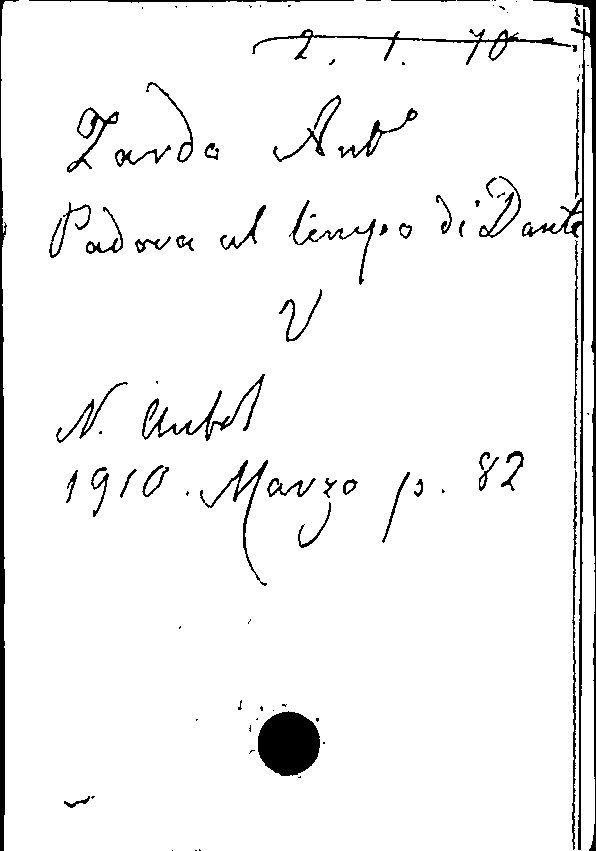 2. 1. 70
Zardo Ant.º
Padova al tempo di Dante
V
N. Antol
1910. Marzo p. 82